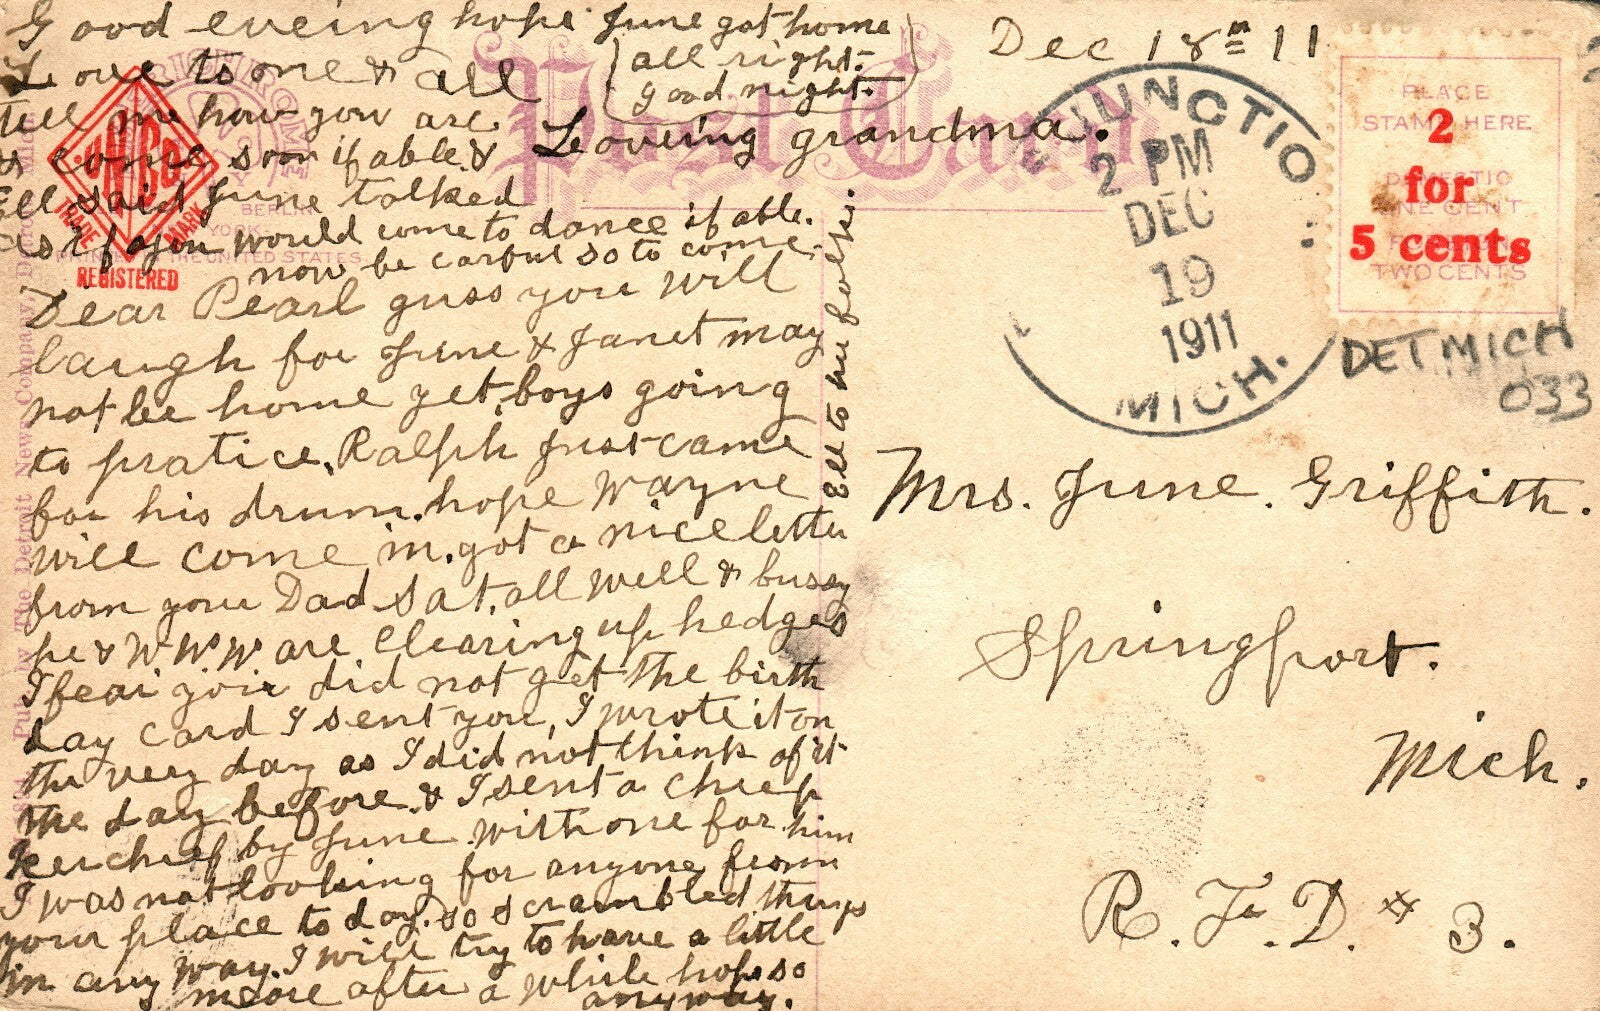 Good eveing hope June got home
all right.
good night.
Love to one & all
tell me how you are
& come soon if able &
Ell said June talked
as if you would come to dance if able.
now be carful so to come
Loveing grandma.
Dear Pearl guss you will
laugh for June & Janet may
not be home yet, boys going
to pratice, Ralph just came
for his drum. hope Wayne
will come in. got a nice letter
from your Dad Sat, all well & bussy
he & W W W are clearing up hedges
I fear you did not get the birth
day card I sent you, I wrote it on
the very day as I did not think of it
the day before & I sent a cheep
kerchief by June with one for him
I was not looking for anyone from
your place to day, so scrambled things
in any way. I will try to have a little
more after a while hope so
anyway.
Ell to
Dec 18th 11
JUNCTIO
2 PM
DEC
19
1911
MICH.
PLACE
STAMP HERE
DOMESTIC
ONE CENT
FOREIGN
TWO CENTS
2
for
5 cents
DET MICH
033
Mrs. June. Griffith.
Springport.
Mich.
R. F. D. # 3.
Post Card
TRADE MARK
REGISTERED
BERLIN
THE UNITED STATES
Pub. by The Detroit News Company, Detroit